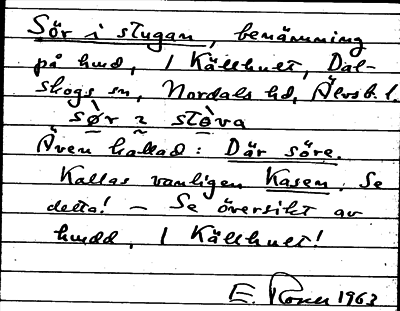 Sör i stugan, benämning
på hmd, 1 Källhult, Dal-
skogs sn, Nordals hd, Älvsb. l.
sø̀r ı stòva
Även kallad: Där söre.
Kallas vanligen Kasen. Se
detta! — Se översikt av
hmdd, 1 Källhult!
E. 1963